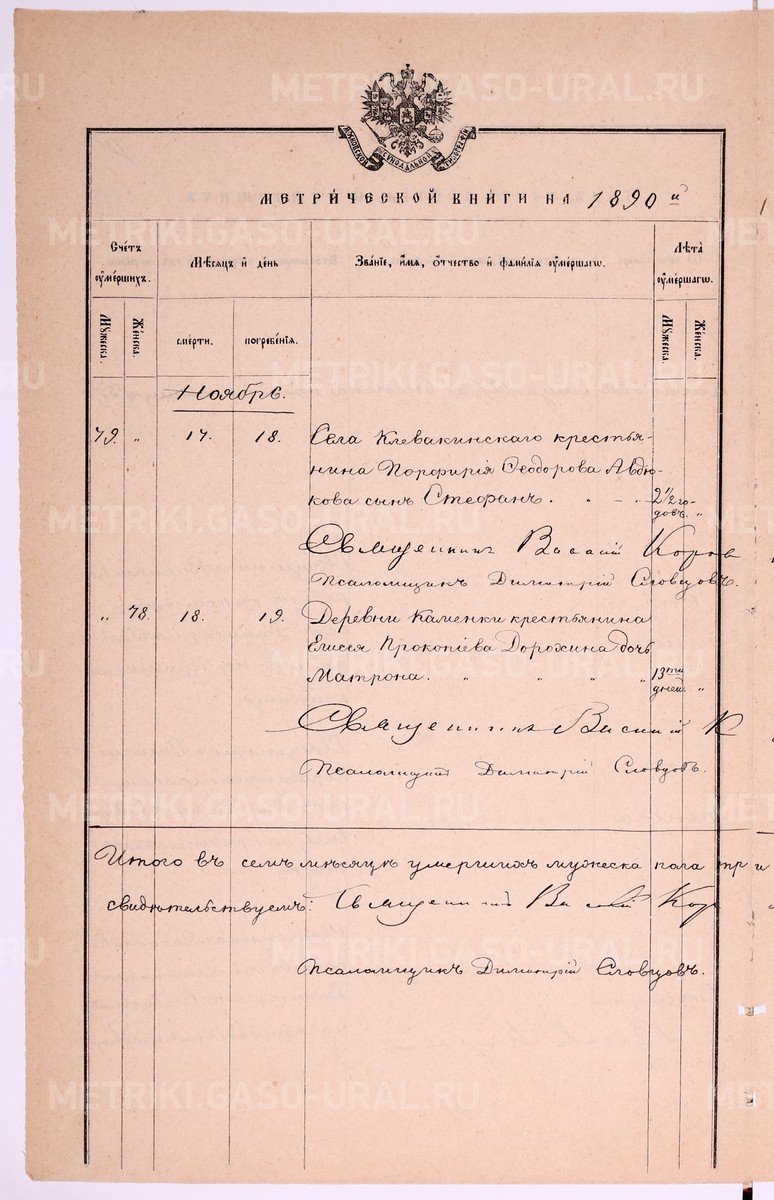 МОСКОВСКОЙ СѴНОДАЛЬНОЙ ТИПОГРАФІИ
МЕТРИ́ЧЕСКОЙ КНИ́ГИ НА 1890й
Сче́тъ ᲂу҆ме́ршихъ.
Мѣ́сяцъ и҆ де́нь
Зва́нїе, и҆́мѧ, ѻ҆́тчество и҆ фами́лїѧ ᲂу҆ме́ршагѡ.
Лѣ́та ᲂу҆ме́ршагѡ.
Му́жеска.
Же́нска.
сме́рти.
погребе́нїѧ.
Му́жеска.
Же́нска.
Ноябрь.
79. „ 17. 18. Села Клевакинскаго крестья-
нина Порфирія Ѳеодорова Авдю-
кова сынъ Стефанъ. 2 1/2 го-
довъ. „
Священникъ Василій Коров
Псаломщикъ Димитрій Словцовъ.
„ 78. 18. 19. Деревни Каменки крестьянина
Елисея Прокопіева Дорохина дочь
Матрона. „ „ „ „ 13ти
дней. „
Священникъ Василій К
Псаломщикъ Димитрій Словцовъ.
Итого въ семъ мѣсяцѣ умершихъ мужеска пола три
свидѣтельствуемъ: Священникъ Василій Кор
Псаломщикъ Димитрій Словцовъ.
METRIKI.GASO-URAL.RU